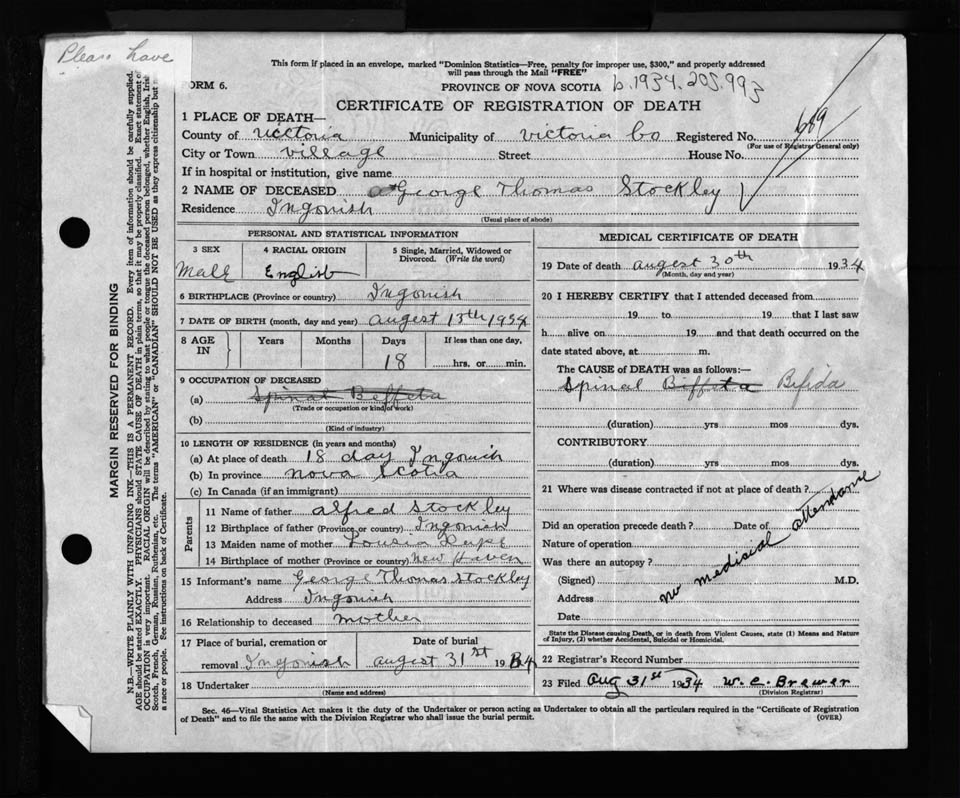 Please have
This form if placed in an envelope, marked "Dominion Statistics—Free, penalty for improper use, $300," and properly addressed
will pass through the Mail "FREE"
FORM 6.
PROVINCE OF NOVA SCOTIA b.1934.205.993
CERTIFICATE OF REGISTRATION OF DEATH
1 PLACE OF DEATH—
County of Victoria Municipality of Victoria Co Registered No. 689
(For use of Registrar General only)
City or Town village Street House No.
If in hospital or institution, give name
2 NAME OF DECEASED George Thomas Stockley
Residence Ingonish
(Usual place of abode)
PERSONAL AND STATISTICAL INFORMATION
3 SEX 4 RACIAL ORIGIN 5 Single, Married, Widowed or
Divorced. (Write the word)
Male English
6 BIRTHPLACE (Province or country) Ingonish
7 DATE OF BIRTH (month, day and year) august 13th 1934
8 AGE IN Years Months Days If less than one day,
18 hrs. or min.
9 OCCUPATION OF DECEASED
(a) Spinal Beffeta
(Trade or occupation or kind of work)
(b)
(Kind of industry)
10 LENGTH OF RESIDENCE (in years and months)
(a) At place of death 18 day Ingonish
(b) In province nova scotia
(c) In Canada (if an immigrant)
Parents
11 Name of father alfred Stockley
12 Birthplace of father (Province or country) Ingonish
13 Maiden name of mother Lousia
14 Birthplace of mother (Province or country) New Haven
15 Informant's name George Thomas Stockley
Address Ingonish
16 Relationship to deceased mother
17 Place of burial, cremation or Date of burial
removal Ingonish august 31st 1934
18 Undertaker
(Name and address)
MEDICAL CERTIFICATE OF DEATH
19 Date of death august 30th 1934
(Month, day and year)
20 I HEREBY CERTIFY that I attended deceased from
19 to 19 that I last saw
h alive on 19 and that death occurred on the
date stated above, at m.
The CAUSE of DEATH was as follows:—
Spinal Beffeta Bifida
(duration) yrs mos dys.
CONTRIBUTORY
(duration) yrs mos dys.
21 Where was disease contracted if not at place of death?
Did an operation precede death? Date of
Nature of operation
Was there an autopsy?
(Signed) M.D.
Address
Date
no medicial attendance
State the Disease causing Death, or in death from Violent Causes, state (1) Means and Nature
of Injury, (2) whether Accidental, Suicidal or Homicidal.
22 Registrar's Record Number
23 Filed Aug 31st 1934 W. C. Brewer
(Division Registrar)
Sec. 46—Vital Statistics Act makes it the duty of the Undertaker or person acting as Undertaker to obtain all the particulars required in the "Certificate of Registration
of Death" and to file the same with the Division Registrar who shall issue the burial permit.
(OVER)
MARGIN RESERVED FOR BINDING
N.B.—WRITE PLAINLY WITH UNFADING INK—THIS IS A PERMANENT RECORD. Every item of information should be carefully supplied.
AGE should be stated EXACTLY. PHYSICIANS should STATE CAUSE OF DEATH in plain terms, so that it may be properly classified. Exact statement of
OCCUPATION is very important. RACIAL ORIGIN will be described by stating to what people or tongue the deceased person belonged, whether English, Irish
Scotch, French, German, Russian, Ruthenian, etc. The terms "AMERICAN" or "CANADIAN" SHOULD NOT BE USED as they express citizenship but
a race or people. See instructions on back of Certificate.